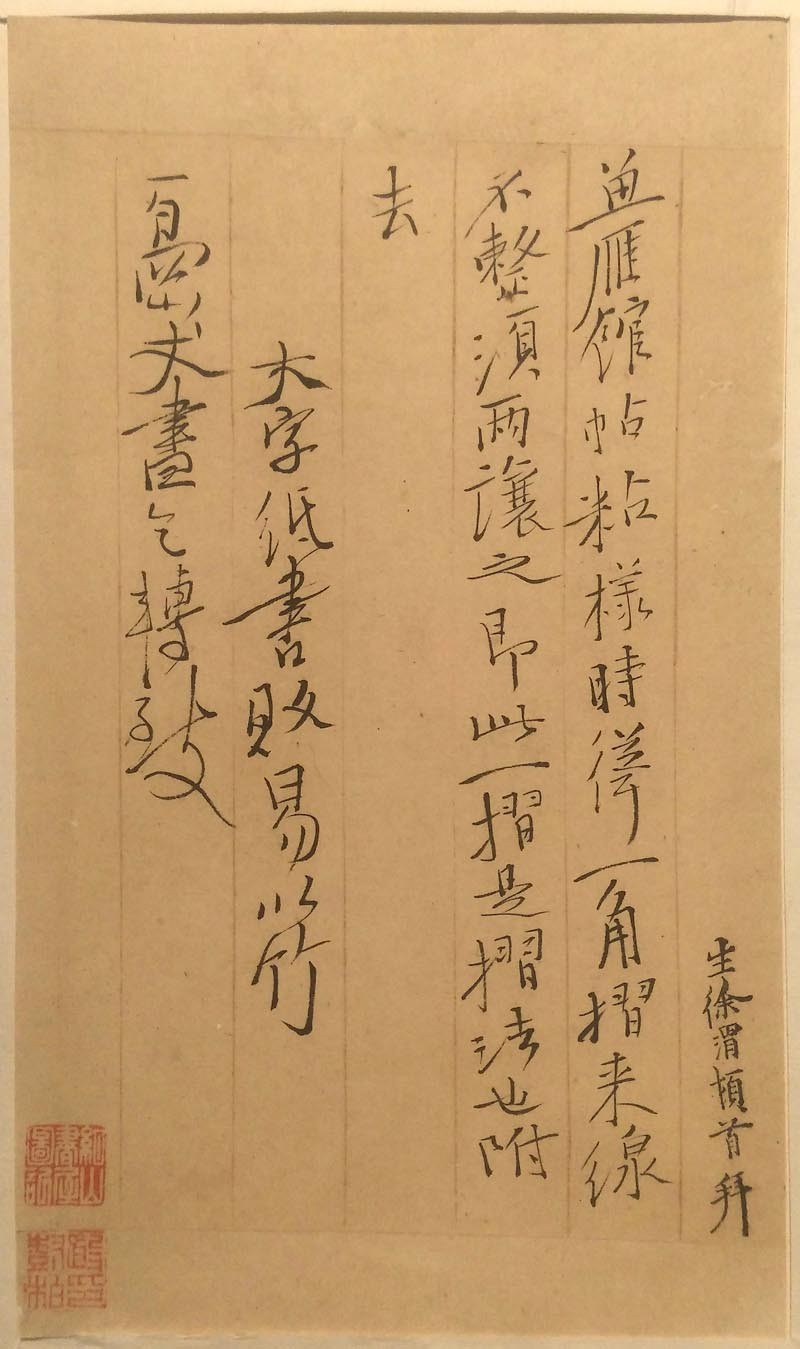 生徐渭頓首拜
魚雁館帖粘樣時從一角摺来線
不整須兩讓之即此一摺是摺法也附
去
大字紙書敗易以竹
岡丈畫乞轉致